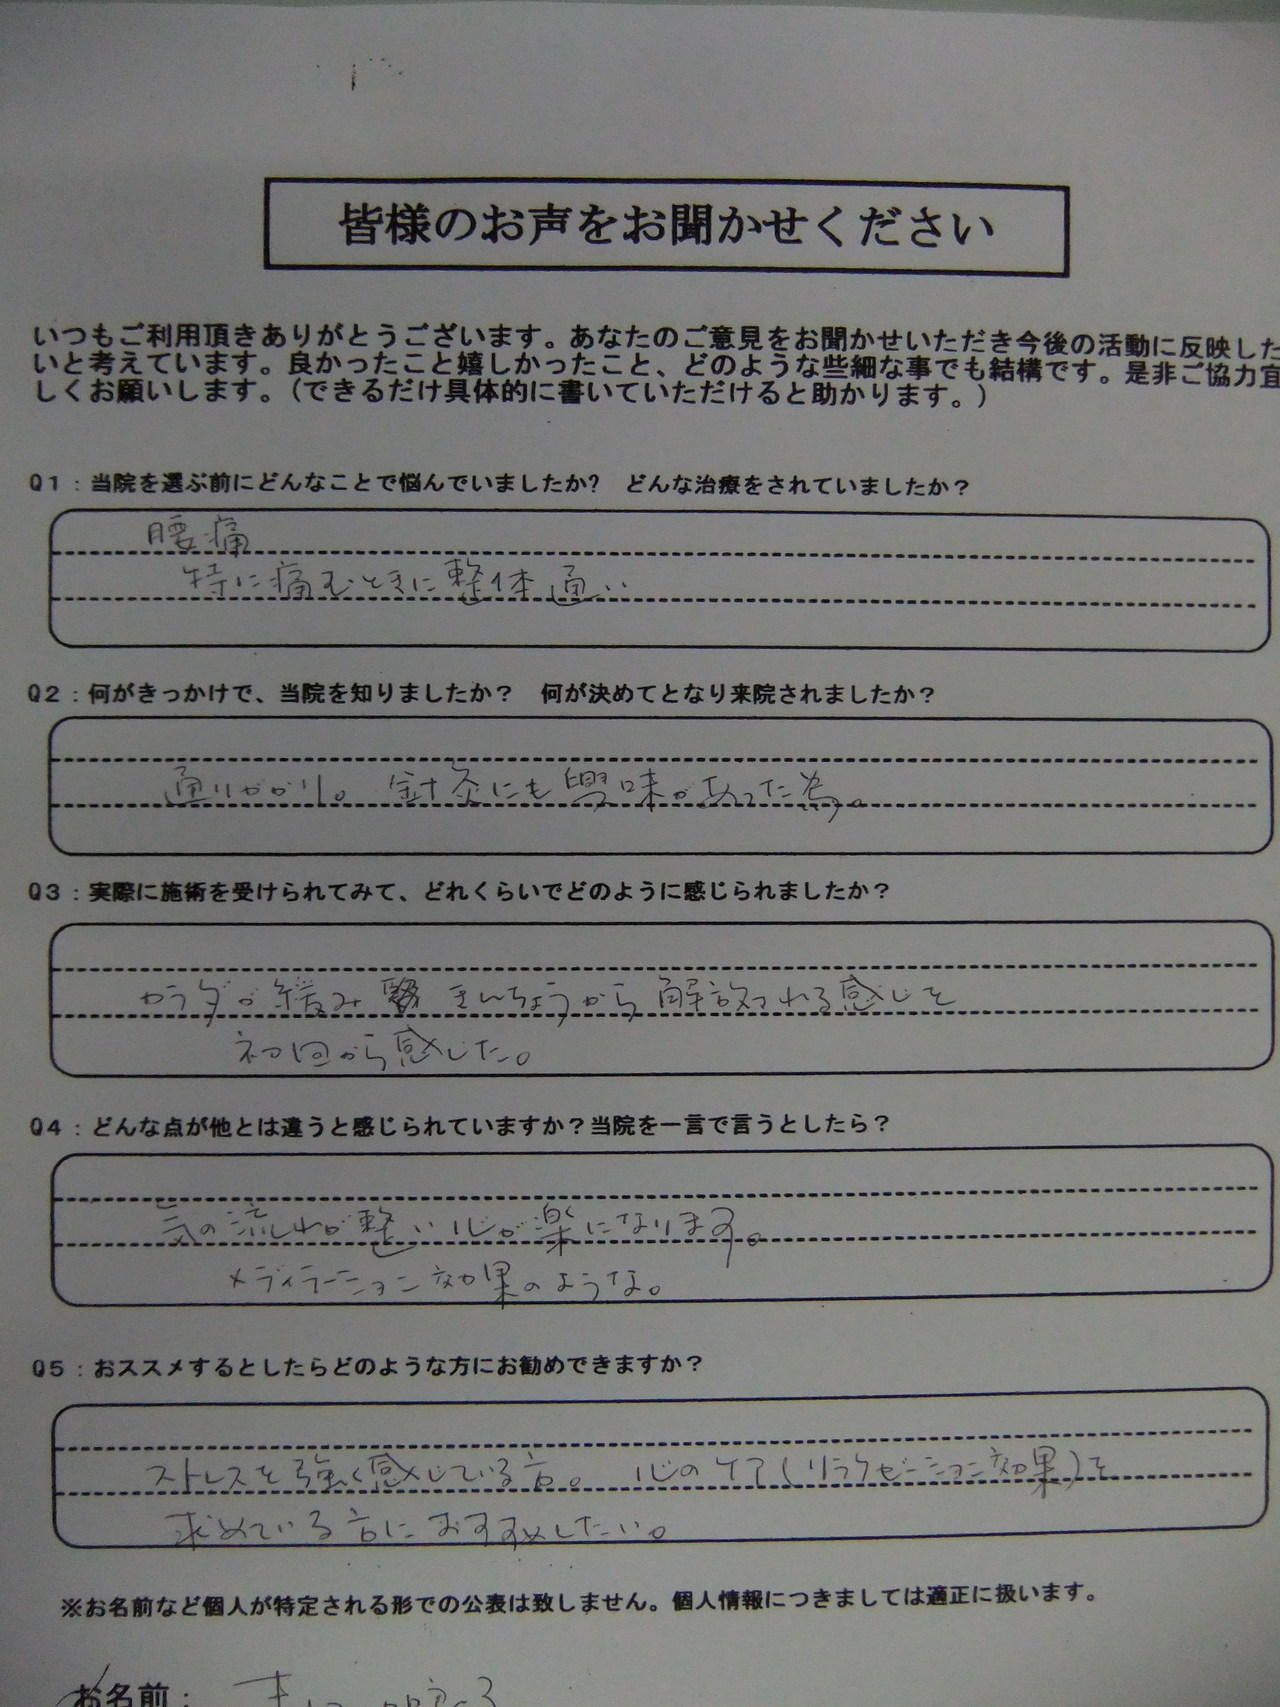 皆様のお声をお聞かせください
いつもご利用頂きありがとうございます。あなたのご意見をお聞かせいただき今後の活動に反映した
いと考えています。良かったこと嬉しかったこと、どのような些細な事でも結構です。是非ご協力宜
しくお願いします。（できるだけ具体的に書いていただけると助かります。）
Q1：当院を選ぶ前にどんなことで悩んでいましたか?　どんな治療をされていましたか？
腰痛
特に痛むときに整体通い
Q2：何がきっかけで、当院を知りましたか？　何が決めてとなり来院されましたか？
通りがかり。 針灸にも興味があった為。
Q3：実際に施術を受けられてみて、どれくらいでどのように感じられましたか？
カラダが緩み きんちょうから解放される感じを
初回から感じた。
Q4：どんな点が他とは違うと感じられていますか？当院を一言で言うとしたら？
気の流れが整い心が楽になります。
メディテーション効果のような。
Q5：おススメするとしたらどのような方にお勧めできますか？
ストレスを強く感じている方。 心のケア(リラクゼーション効果)を
求めている方におすすめしたい。
※お名前など個人が特定される形での公表は致しません。個人情報につきましては適正に扱います。
お名前：